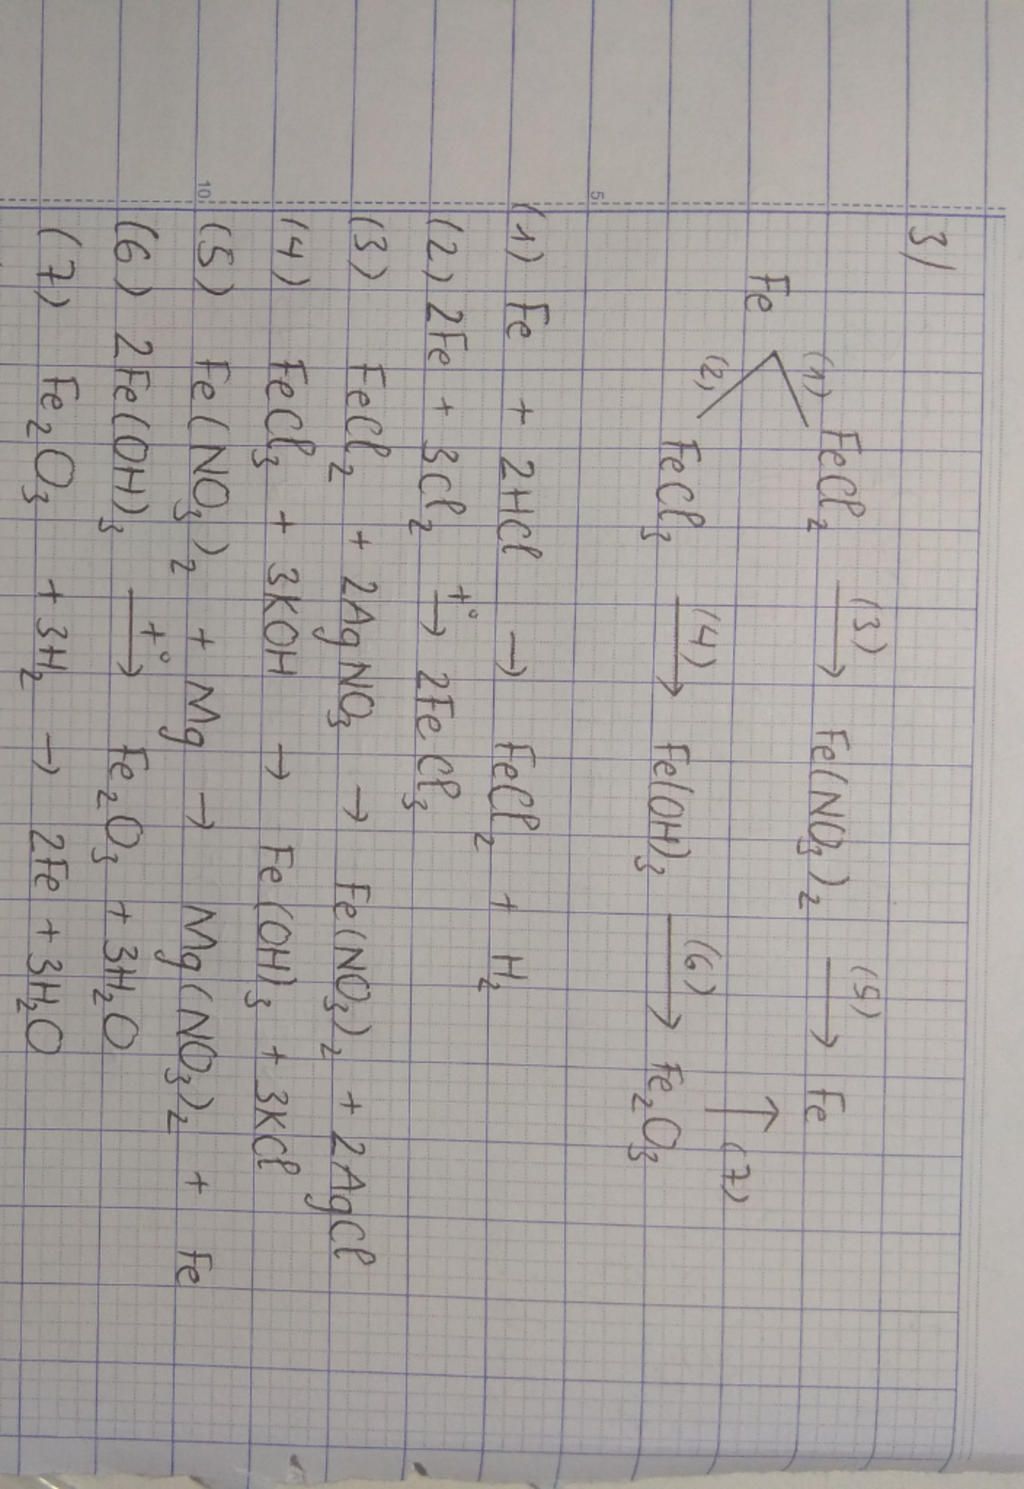 3/
(1) FeCl₂ (3)→ Fe(NO₃)₂ (5)→ Fe
Fe ↑ (7)
(2) FeCl₃ (4)→ Fe(OH)₃ (6)→ Fe₂O₃
5
(1) Fe + 2HCl → FeCl₂ + H₂
(2) 2Fe + 3Cl₂ t°→ 2FeCl₃
(3) FeCl₂ + 2AgNO₃ → Fe(NO₃)₂ + 2AgCl
(4) FeCl₃ + 3KOH → Fe(OH)₃ + 3KCl
10
(5) Fe(NO₃)₂ + Mg → Mg(NO₃)₂ + Fe
(6) 2Fe(OH)₃ t°→ Fe₂O₃ + 3H₂O
(7) Fe₂O₃ + 3H₂ → 2Fe + 3H₂O